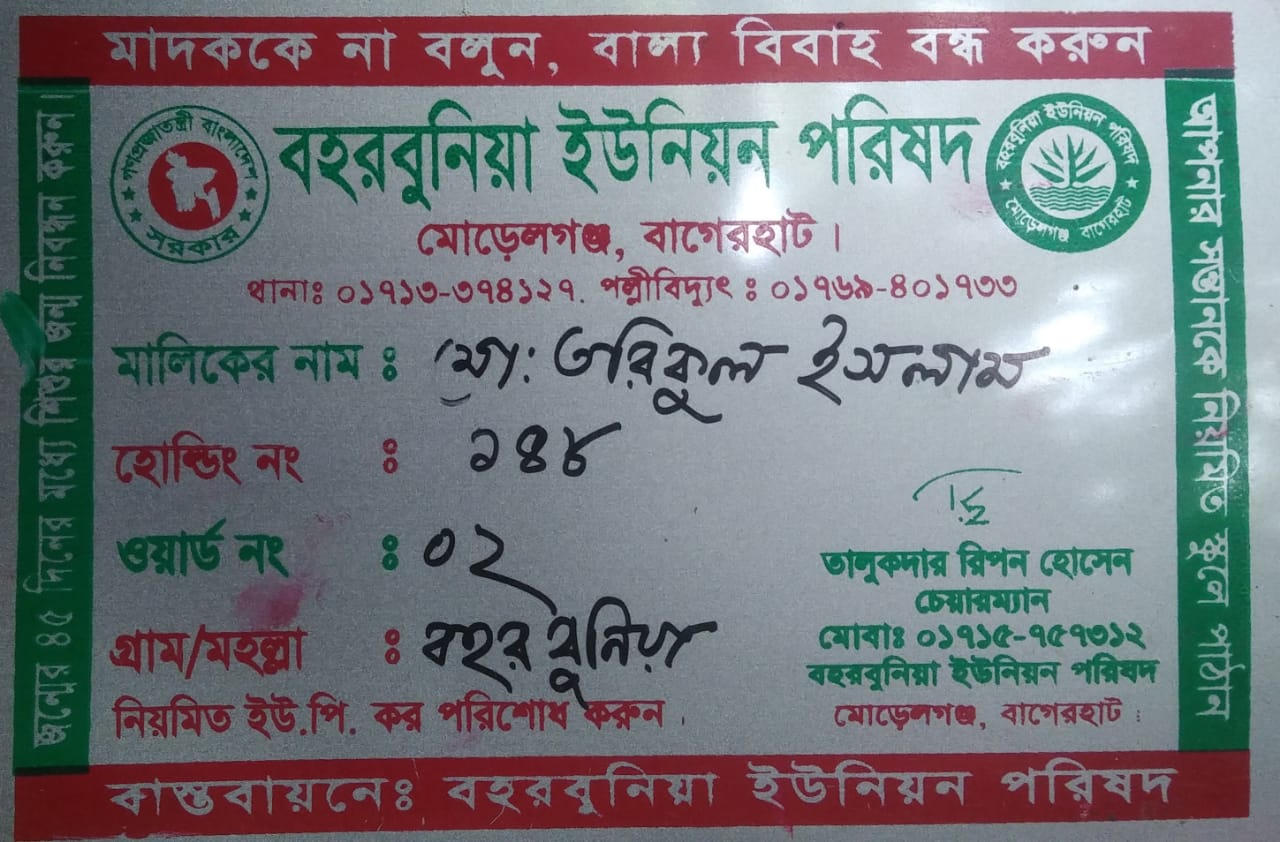 মাদককে না বলুন, বাল্য বিবাহ বন্ধ করুন
জন্মের ৪৫ দিনের মধ্যে শিশুর জন্ম নিবন্ধন করুন।
গণপ্রজাতন্ত্রী বাংলাদেশ
সরকার
বহরবুনিয়া ইউনিয়ন পরিষদ
বহরবুনিয়া ইউনিয়ন পরিষদ
মোড়েলগঞ্জ বাগেরহাট
মোড়েলগঞ্জ, বাগেরহাট।
থানাঃ ০১৭১৩-৩৭৪১২৭. পল্লীবিদ্যুৎ : ০১৭৬৯-৪০১৭৩৩
মালিকের নাম : মো: তরিকুল ইসলাম
হোল্ডিং নং : ১৪৪
ওয়ার্ড নং : ০২
গ্রাম/মহল্লা : বহর বুনিয়া
নিয়মিত ইউ.পি. কর পরিশোধ করুন।
তালুকদার রিপন হোসেন
চেয়ারম্যান
মোবাঃ ০১৭১৫-৭৫৭৩১২
বহরবুনিয়া ইউনিয়ন পরিষদ
মোড়েলগঞ্জ, বাগেরহাট।
আপনার সন্তানকে নিয়মিত স্কুলে পাঠান
বাস্তবায়নেঃ বহরবুনিয়া ইউনিয়ন পরিষদ